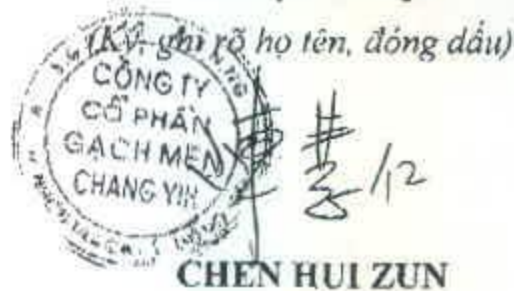 (Ký, ghi rõ họ tên, đóng dấu)
CÔNG TY
CỔ PHẦN
GẠCH MEN
CHANG YIH
/12
CHEN HUI ZUN